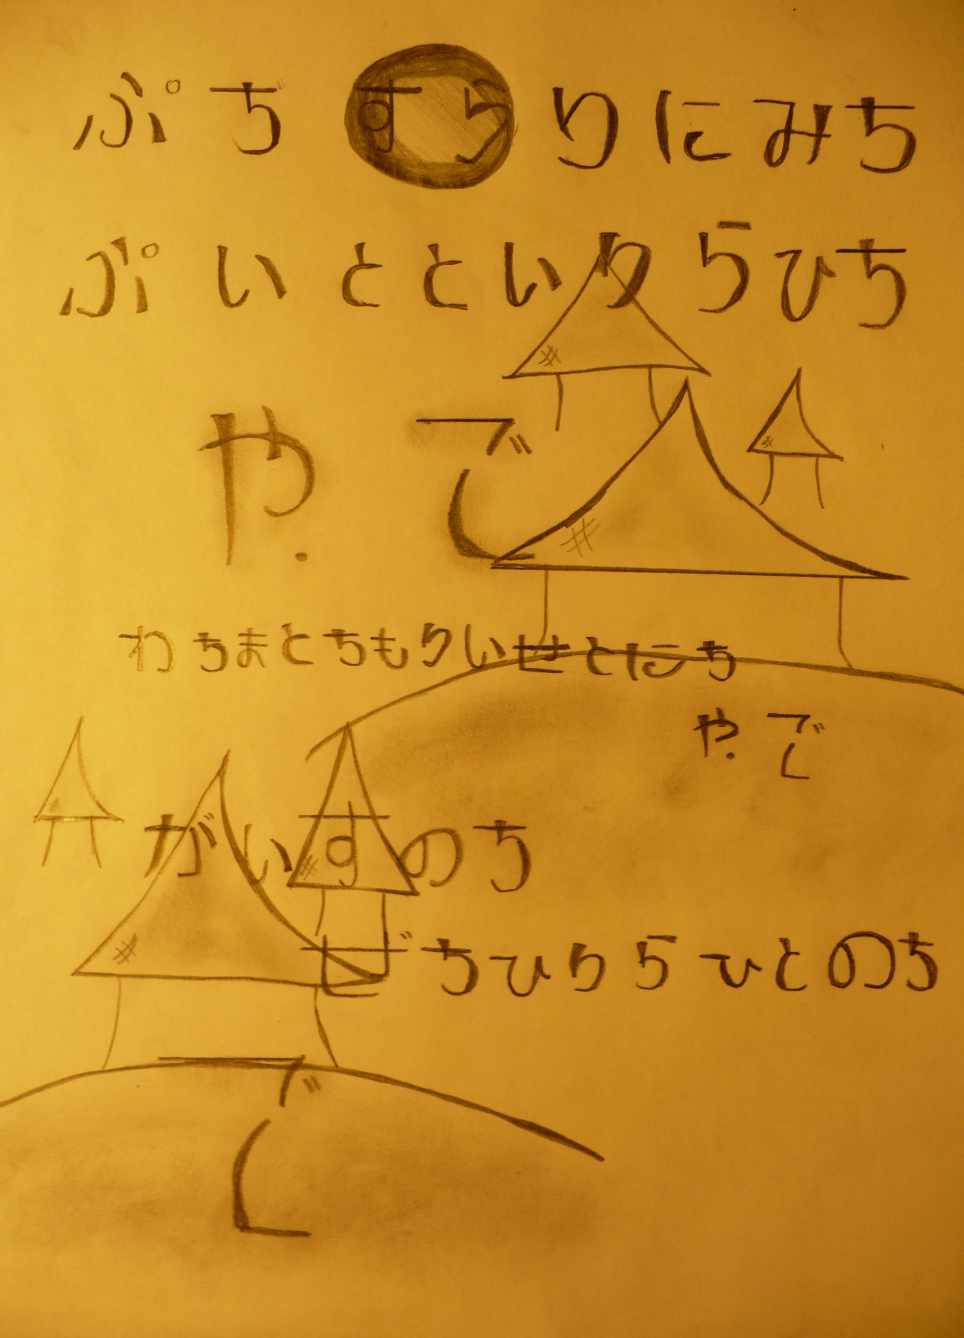 ぷちすらりにみち
ぷいとといりらひち
や。で
わちまとちもりいせとにち
や。で
がいすのち
ぜちひりらひとのち
で